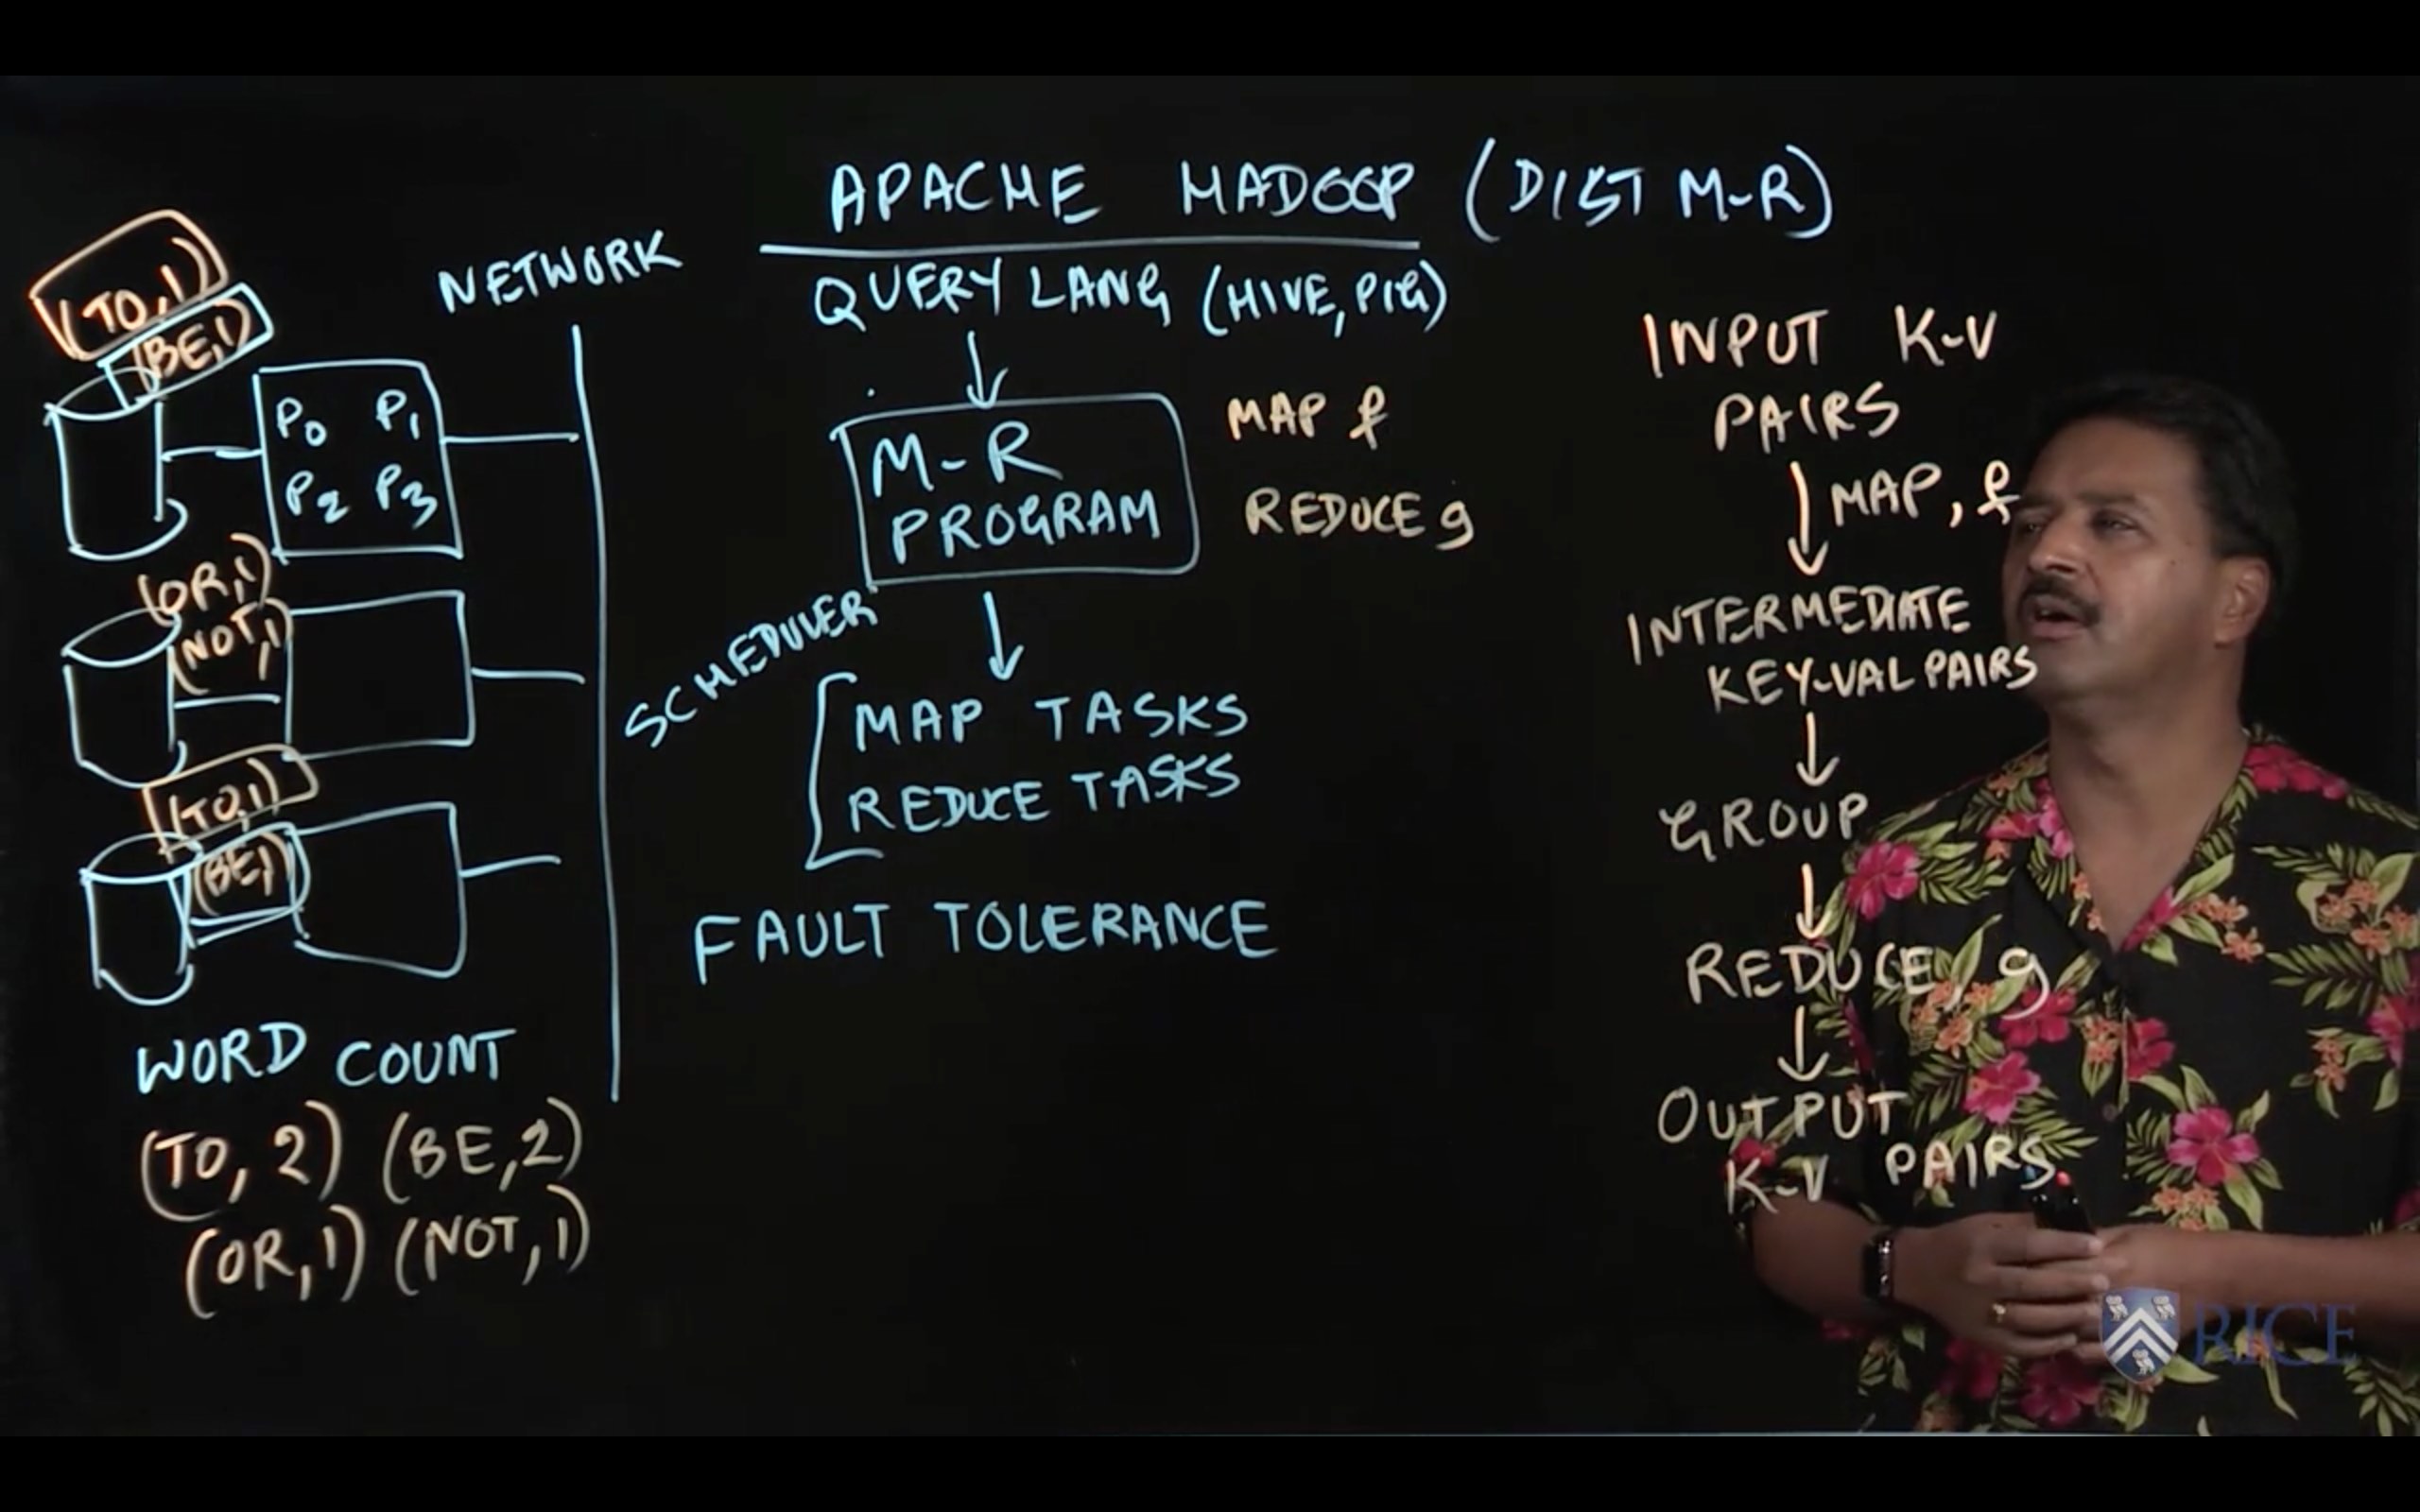 APACHE HADOOP (DIST M-R)
NETWORK
QUERY LANG (HIVE, PIG)
(TO, 1)
(BE, 1)
P0 P1
P2 P3
(OR, 1)
(NOT, 1)
(TO, 1)
(BE, 1)
WORD COUNT
(TO, 2) (BE, 2)
(OR, 1) (NOT, 1)
M-R
PROGRAM
MAP f
REDUCE g
SCHEDULER
MAP TASKS
REDUCE TASKS
FAULT TOLERANCE
INPUT K-V
PAIRS
MAP, f
INTERMEDIATE
KEY-VAL PAIRS
GROUP
REDUCE, g
OUTPUT
K-V PAIRS
RICE